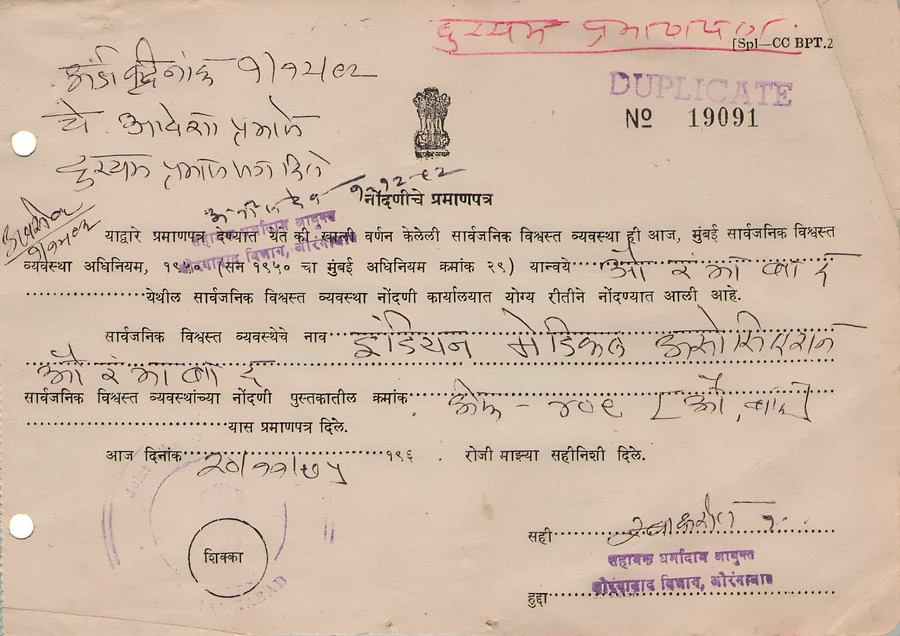 दुय्यम प्रमाणपत्र
[Spl—CC BPT.2
अर्ज दिनांक १/१२/८२
चे आदेशा प्रमाणे
दुय्यम प्रमाणपत्र दिले
DUPLICATE
Nº 19091
१-१२-८२
नोंदणीचे प्रमाणपत्र
सहाय्यक धर्मादाय आयुक्त
औरंगाबाद विभाग, औरंगाबाद
याद्वारे प्रमाणपत्र देण्यात येते की खाली वर्णन केलेली सार्वजनिक विश्वस्त व्यवस्था ही आज, मुंबई सार्वजनिक विश्वस्त
व्यवस्था अधिनियम, १९५० (सन १९५० चा मुंबई अधिनियम क्रमांक २९) यान्वये औरंगाबाद
येथील सार्वजनिक विश्वस्त व्यवस्था नोंदणी कार्यालयात योग्य रीतीने नोंदण्यात आली आहे.
सार्वजनिक विश्वस्त व्यवस्थेचे नाव इंडियन मेडिकल असोसिएशन
औरंगाबाद
सार्वजनिक विश्वस्त व्यवस्थांच्या नोंदणी पुस्तकातील क्रमांक एफ - ४०९ [औ,बाद]
यास प्रमाणपत्र दिले.
आज दिनांक २०/११/७५ १९६ . रोजी माझ्या सहीनिशी दिले.
शिक्का
सही
सहायक धर्मादाय आयुक्त
औरंगाबाद विभाग, औरंगाबाद
हुद्दा